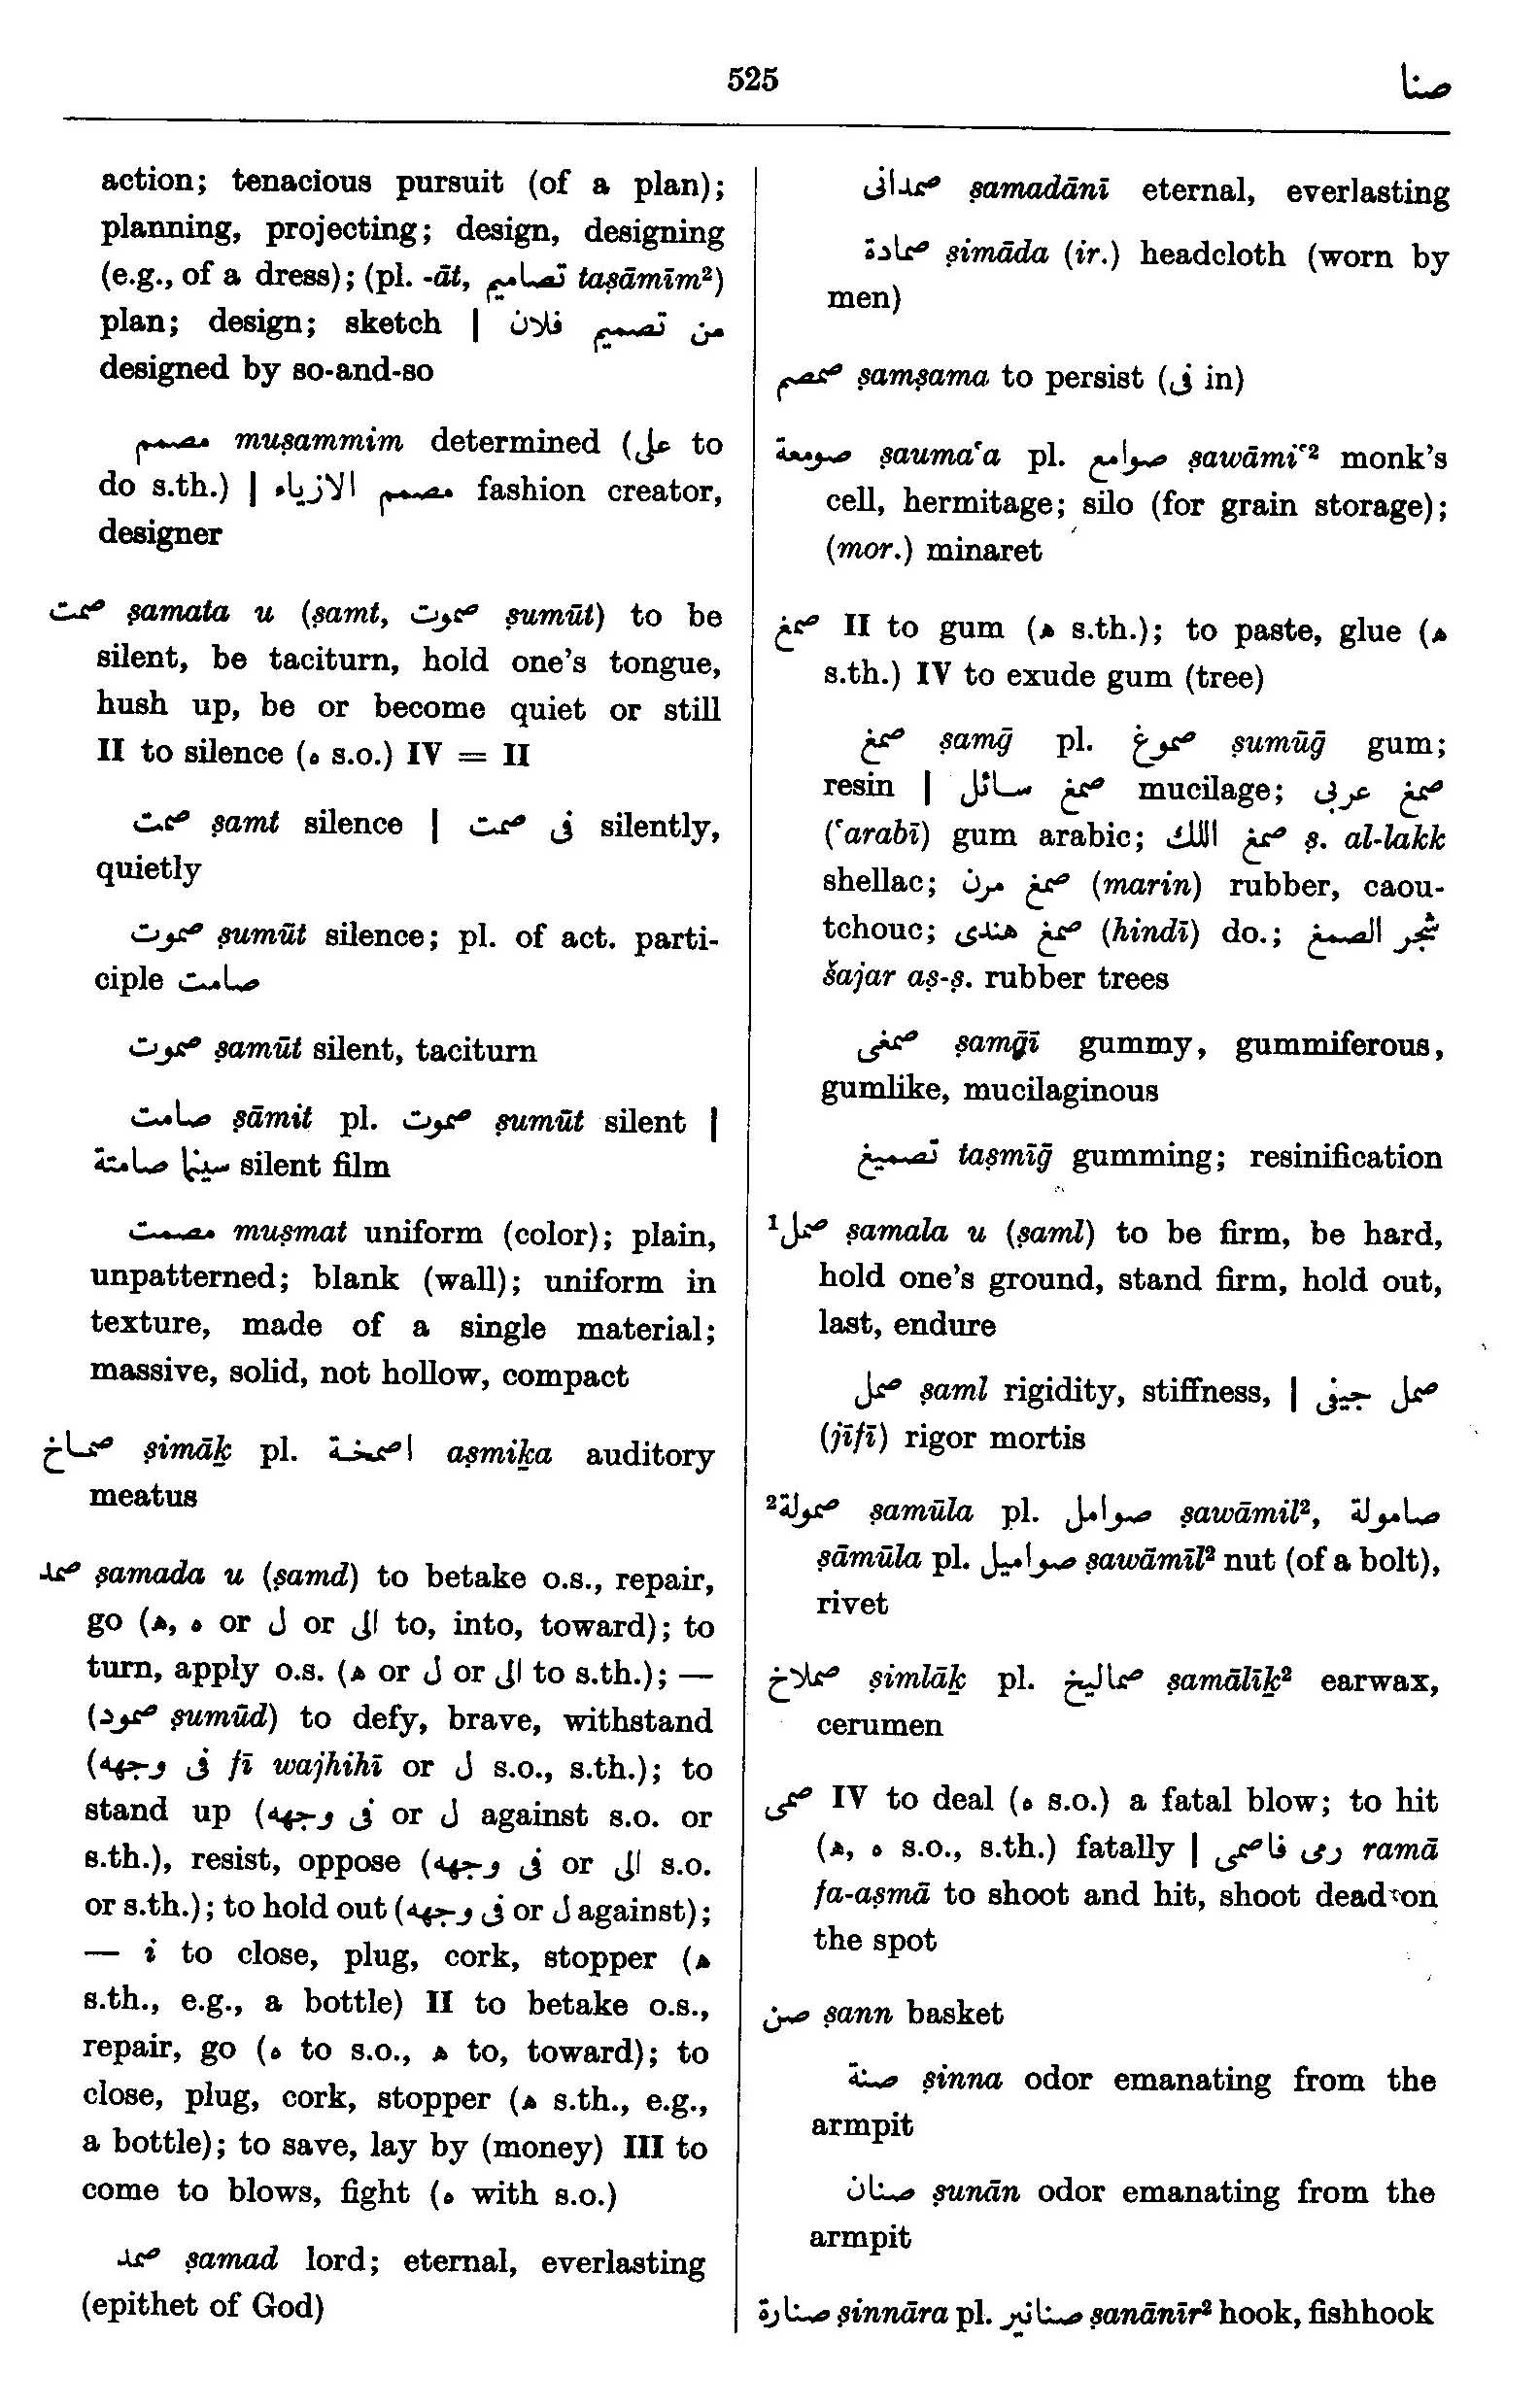 525
صنا
action; tenacious pursuit (of a plan);
planning, projecting; design, designing
(e.g., of a dress); (pl. -āt, تصاميم taṣāmīm²)
plan; design; sketch | من تصميم فلان
designed by so-and-so
مصمم muṣammim determined (على to
do s.th.) | مصمم الازياء fashion creator,
designer
صمت ṣamata u (ṣamt, صموت ṣumūt) to be
silent, be taciturn, hold one's tongue,
hush up, be or become quiet or still
II to silence (ه s.o.) IV = II
صمت ṣamt silence | فى صمت silently,
quietly
صموت ṣumūt silence; pl. of act. parti-
ciple صامت
صموت ṣamūt silent, taciturn
صامت ṣāmit pl. صموت ṣumūt silent |
سينما صامتة silent film
مصمت muṣmat uniform (color); plain,
unpatterned; blank (wall); uniform in
texture, made of a single material;
massive, solid, not hollow, compact
صماخ ṣimāḵ pl. اصمخة aṣmiḵa auditory
meatus
صمد ṣamada u (ṣamd) to betake o.s., repair,
go (ه, ه or ل or الى to, into, toward); to
turn, apply o.s. (ه or ل or الى to s.th.); —
(صمود ṣumūd) to defy, brave, withstand
(فى وجهه fī wajhihī or ل s.o., s.th.); to
stand up (فى وجهه or ل against s.o. or
s.th.), resist, oppose (فى وجهه or الى s.o.
or s.th.); to hold out (فى وجهه or ل against);
— i to close, plug, cork, stopper (ه
s.th., e.g., a bottle) II to betake o.s.,
repair, go (ه to s.o., ه to, toward); to
close, plug, cork, stopper (ه s.th., e.g.,
a bottle); to save, lay by (money) III to
come to blows, fight (ه with s.o.)
صمد ṣamad lord; eternal, everlasting
(epithet of God)
صمدانى ṣamadānī eternal, everlasting
صمادة ṣimāda (ir.) headcloth (worn by
men)
صمصم ṣamṣama to persist (فى in)
صومعة ṣaumaʿa pl. صوامع ṣawāmiʿ² monk's
cell, hermitage; silo (for grain storage);
(mor.) minaret
صمغ II to gum (ه s.th.); to paste, glue (ه
s.th.) IV to exude gum (tree)
صمغ ṣamḡ pl. صموغ ṣumūḡ gum;
resin | صمغ سائل mucilage; صمغ عربى
(ʿarabī) gum arabic; صمغ اللك ṣ. al-lakk
shellac; صمغ مرن (marin) rubber, caou-
tchouc; صمغ هندى (hindī) do.; شجر الصمغ
šajar aṣ-ṣ. rubber trees
صمغى ṣamḡī gummy, gummiferous,
gumlike, mucilaginous
تصميغ taṣmīḡ gumming; resinification
¹صمل ṣamala u (ṣaml) to be firm, be hard,
hold one's ground, stand firm, hold out,
last, endure
صمل ṣaml rigidity, stiffness, | صمل جيفى
(jīfī) rigor mortis
²صمولة ṣamūla pl. صوامل ṣawāmil², صامولة
ṣāmūla pl. صواميل ṣawāmīl² nut (of a bolt),
rivet
صملاخ ṣimlāḵ pl. صماليخ ṣamālīḵ² earwax,
cerumen
صمى IV to deal (ه s.o.) a fatal blow; to hit
(ه, ه s.o., s.th.) fatally | رمى فاصمى ramā
fa-aṣmā to shoot and hit, shoot dead on
the spot
صن ṣann basket
صنة ṣinna odor emanating from the
armpit
صنان ṣunān odor emanating from the
armpit
صنارة ṣinnāra pl. صنانير ṣanānīr² hook, fishhook